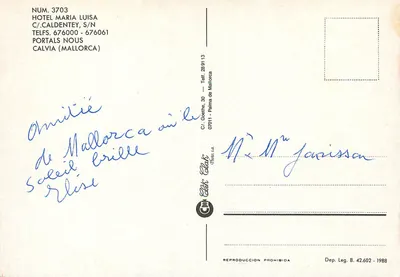 NUM. 3703
HOTEL MARIA LUISA
C/.CALDENTEY, S/N
TELFS. 676000 - 676061
PORTALS NOUS
CALVIA (MALLORCA)
Amitié
de Mallorca où le
soleil brille
Elise
C/. Goethe, 30 — Telf. 28 91 13
07011 - Palma de Mallorca
M. Mme
REPRODUCCION PROHIBIDA
Dep. Leg. B. 42.602 - 1988